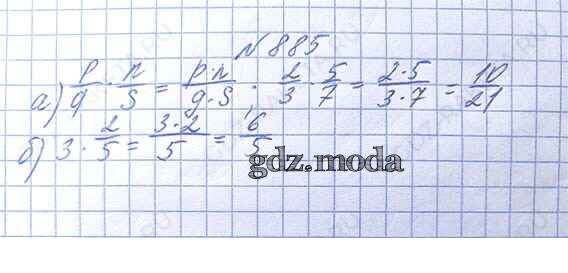 № 885
а) p/q · r/s = p·r/q·s ; 2/3 · 5/7 = 2·5/3·7 = 10/21
б) 3 · 2/5 = 3·2/5 = 6/5
gdz.moda